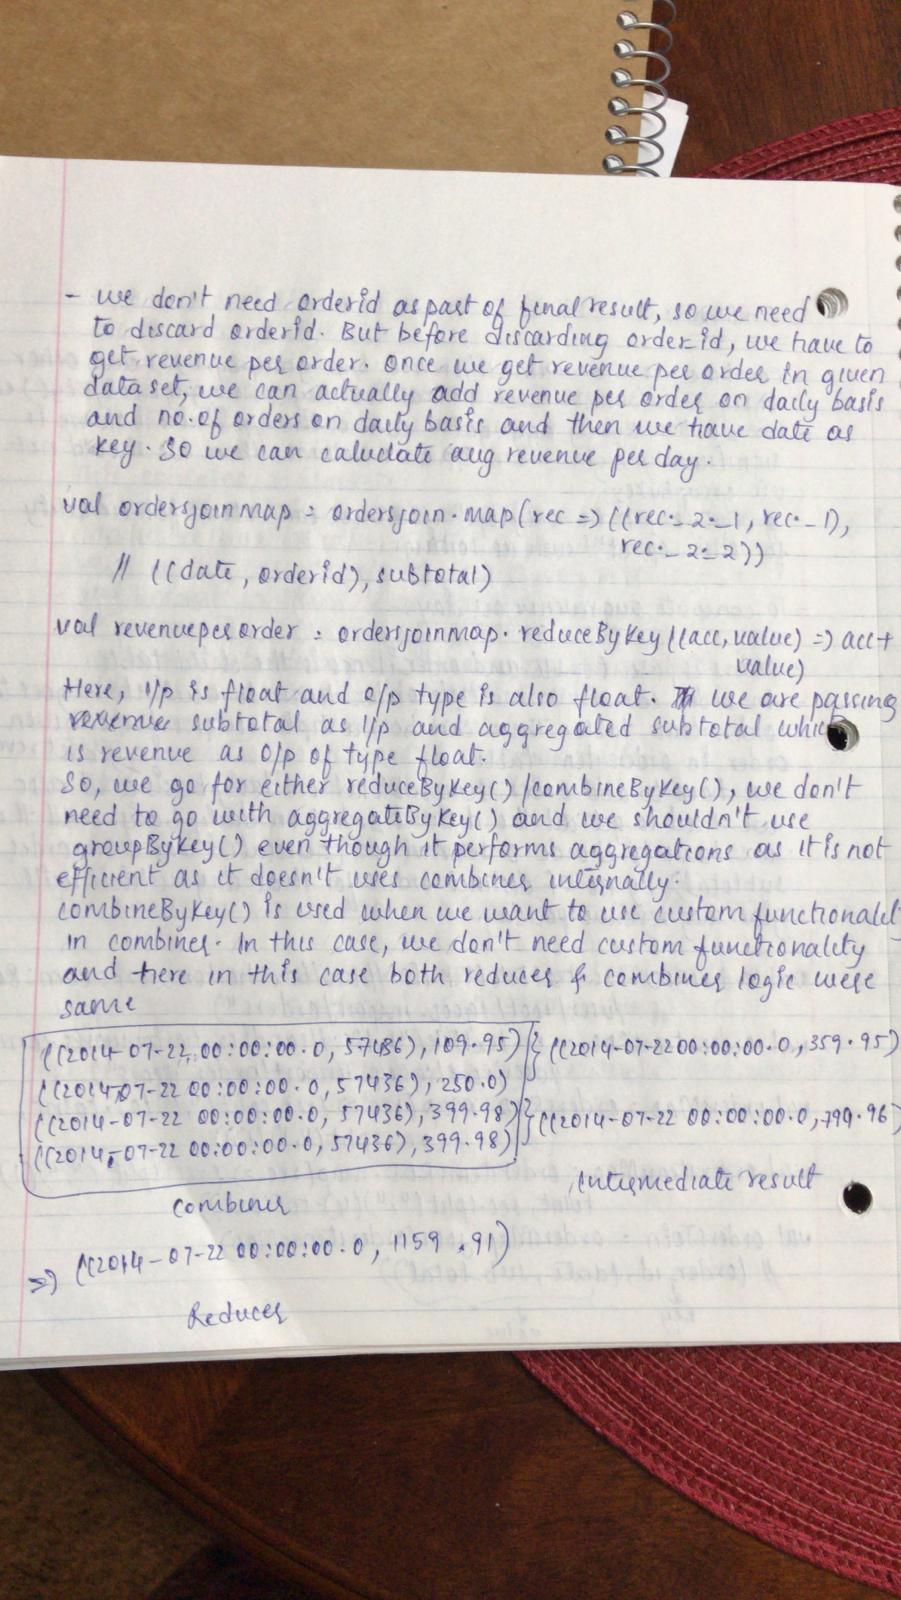 - we don't need orderid as part of final result, so we need
to discard orderid. But before discarding order-id, we have to
get revenue per order. Once we get revenue per order in given
data set, we can actually add revenue per order on daily basis
and no. of orders on daily basis and then we have date as
key. So we can caluclate avg revenue per day.
val ordersjoinmap = ordersjoin.map(rec => ((rec._2._1, rec._1),
rec._2._2))
// ((date, orderid), subtotal)
val revenueperorder = ordersjoinmap.reduceByKey((acc, value) => acc+
value)
Here, i/p is float and o/p type is also float. we are passing
subtotal as i/p and aggregated subtotal which
is revenue as o/p of type float.
So, we go for either reduceByKey()/combineByKey(), we don't
need to go with aggregateByKey() and we shouldn't use
groupByKey() even though it performs aggregations as it is not
efficient as it doesn't uses combiner internally.
combineByKey() is used when we want to use custom functionalit
in combiner. In this case, we don't need custom functionality
and here in this case both reducer & combiner logic were
same
((2014-07-22, 00:00:00.0, 57436), 109.95) } ((2014-07-22 00:00:00.0, 359.95)
((2014-07-22 00:00:00.0, 57436), 250.0)
((2014-07-22 00:00:00.0, 57436), 399.98) } ((2014-07-22 00:00:00.0, 799.96
((2014-07-22 00:00:00.0, 57436), 399.98)
intermediate result
combiner
=> ((2014-07-22 00:00:00.0, 1159.91)
Reducer